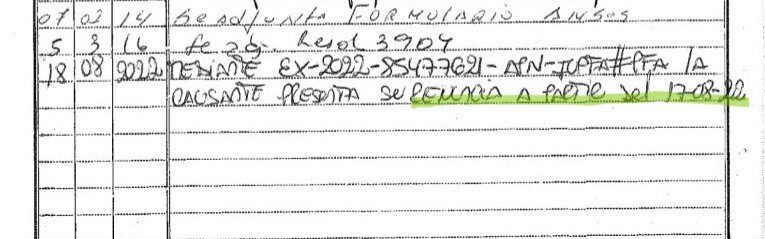 07 02 14 Se adjunta FORMULARIO ANSES
5 3 16 Resol 3904
18 08 2022 MEDIANTE EX-2022-85477621-APN-JUPFA#PFA /A
CAUSANTE PRESENTA SU RENUNCIA A PARTIR del 17-08-22